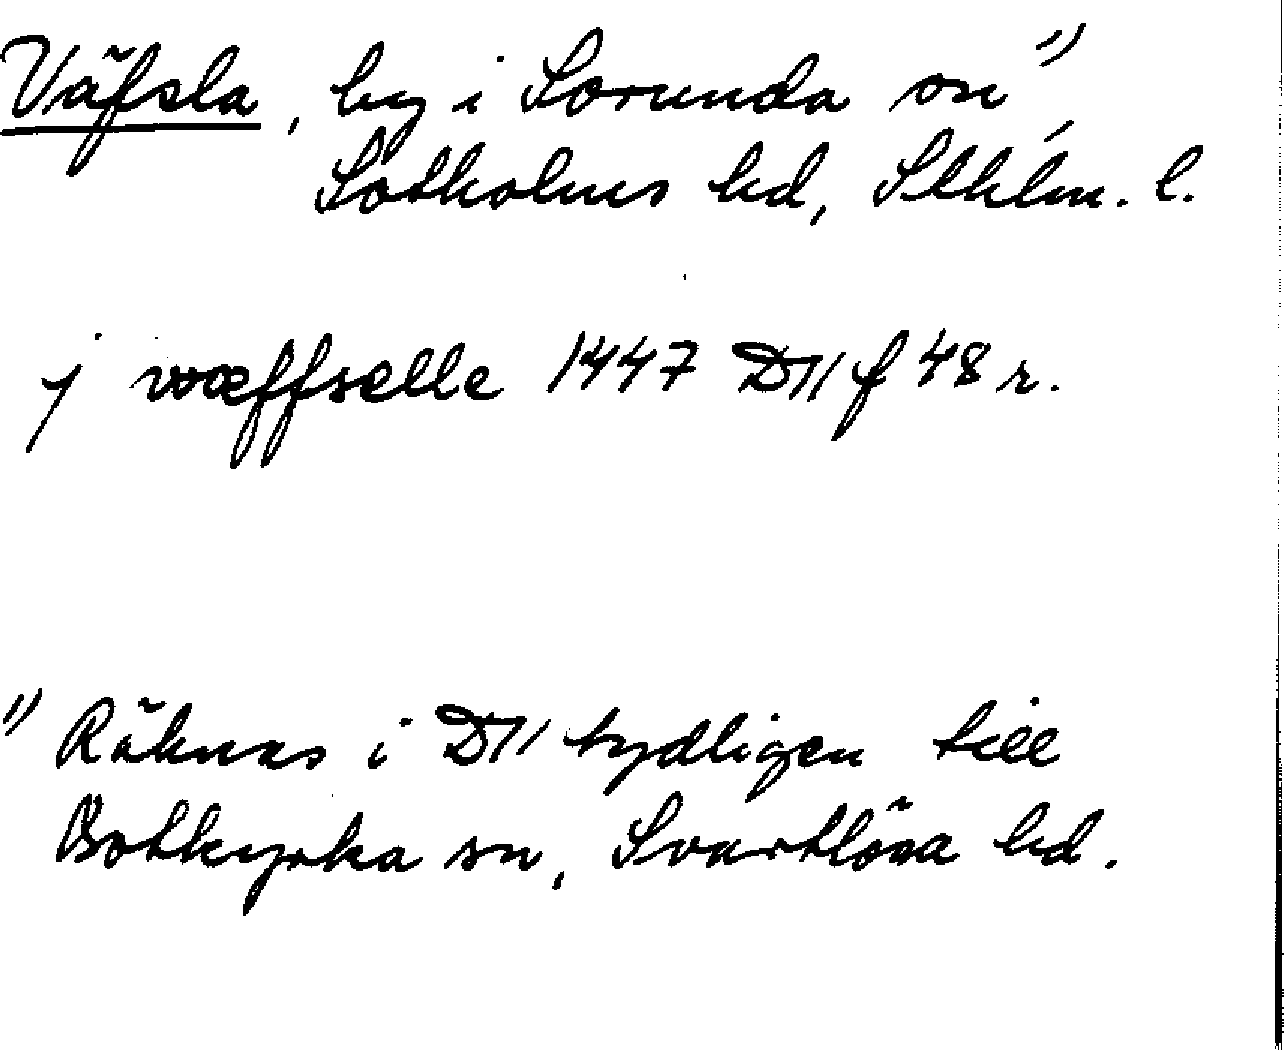 Väfsla, by i Sorunda sn 1)
Sotholms hd, Sthlm. l.
j wæffselle 1447 D11 f 48 r.
1) Räknas i D11 tydligen till
Botkyrka sn, Svartlösa hd.